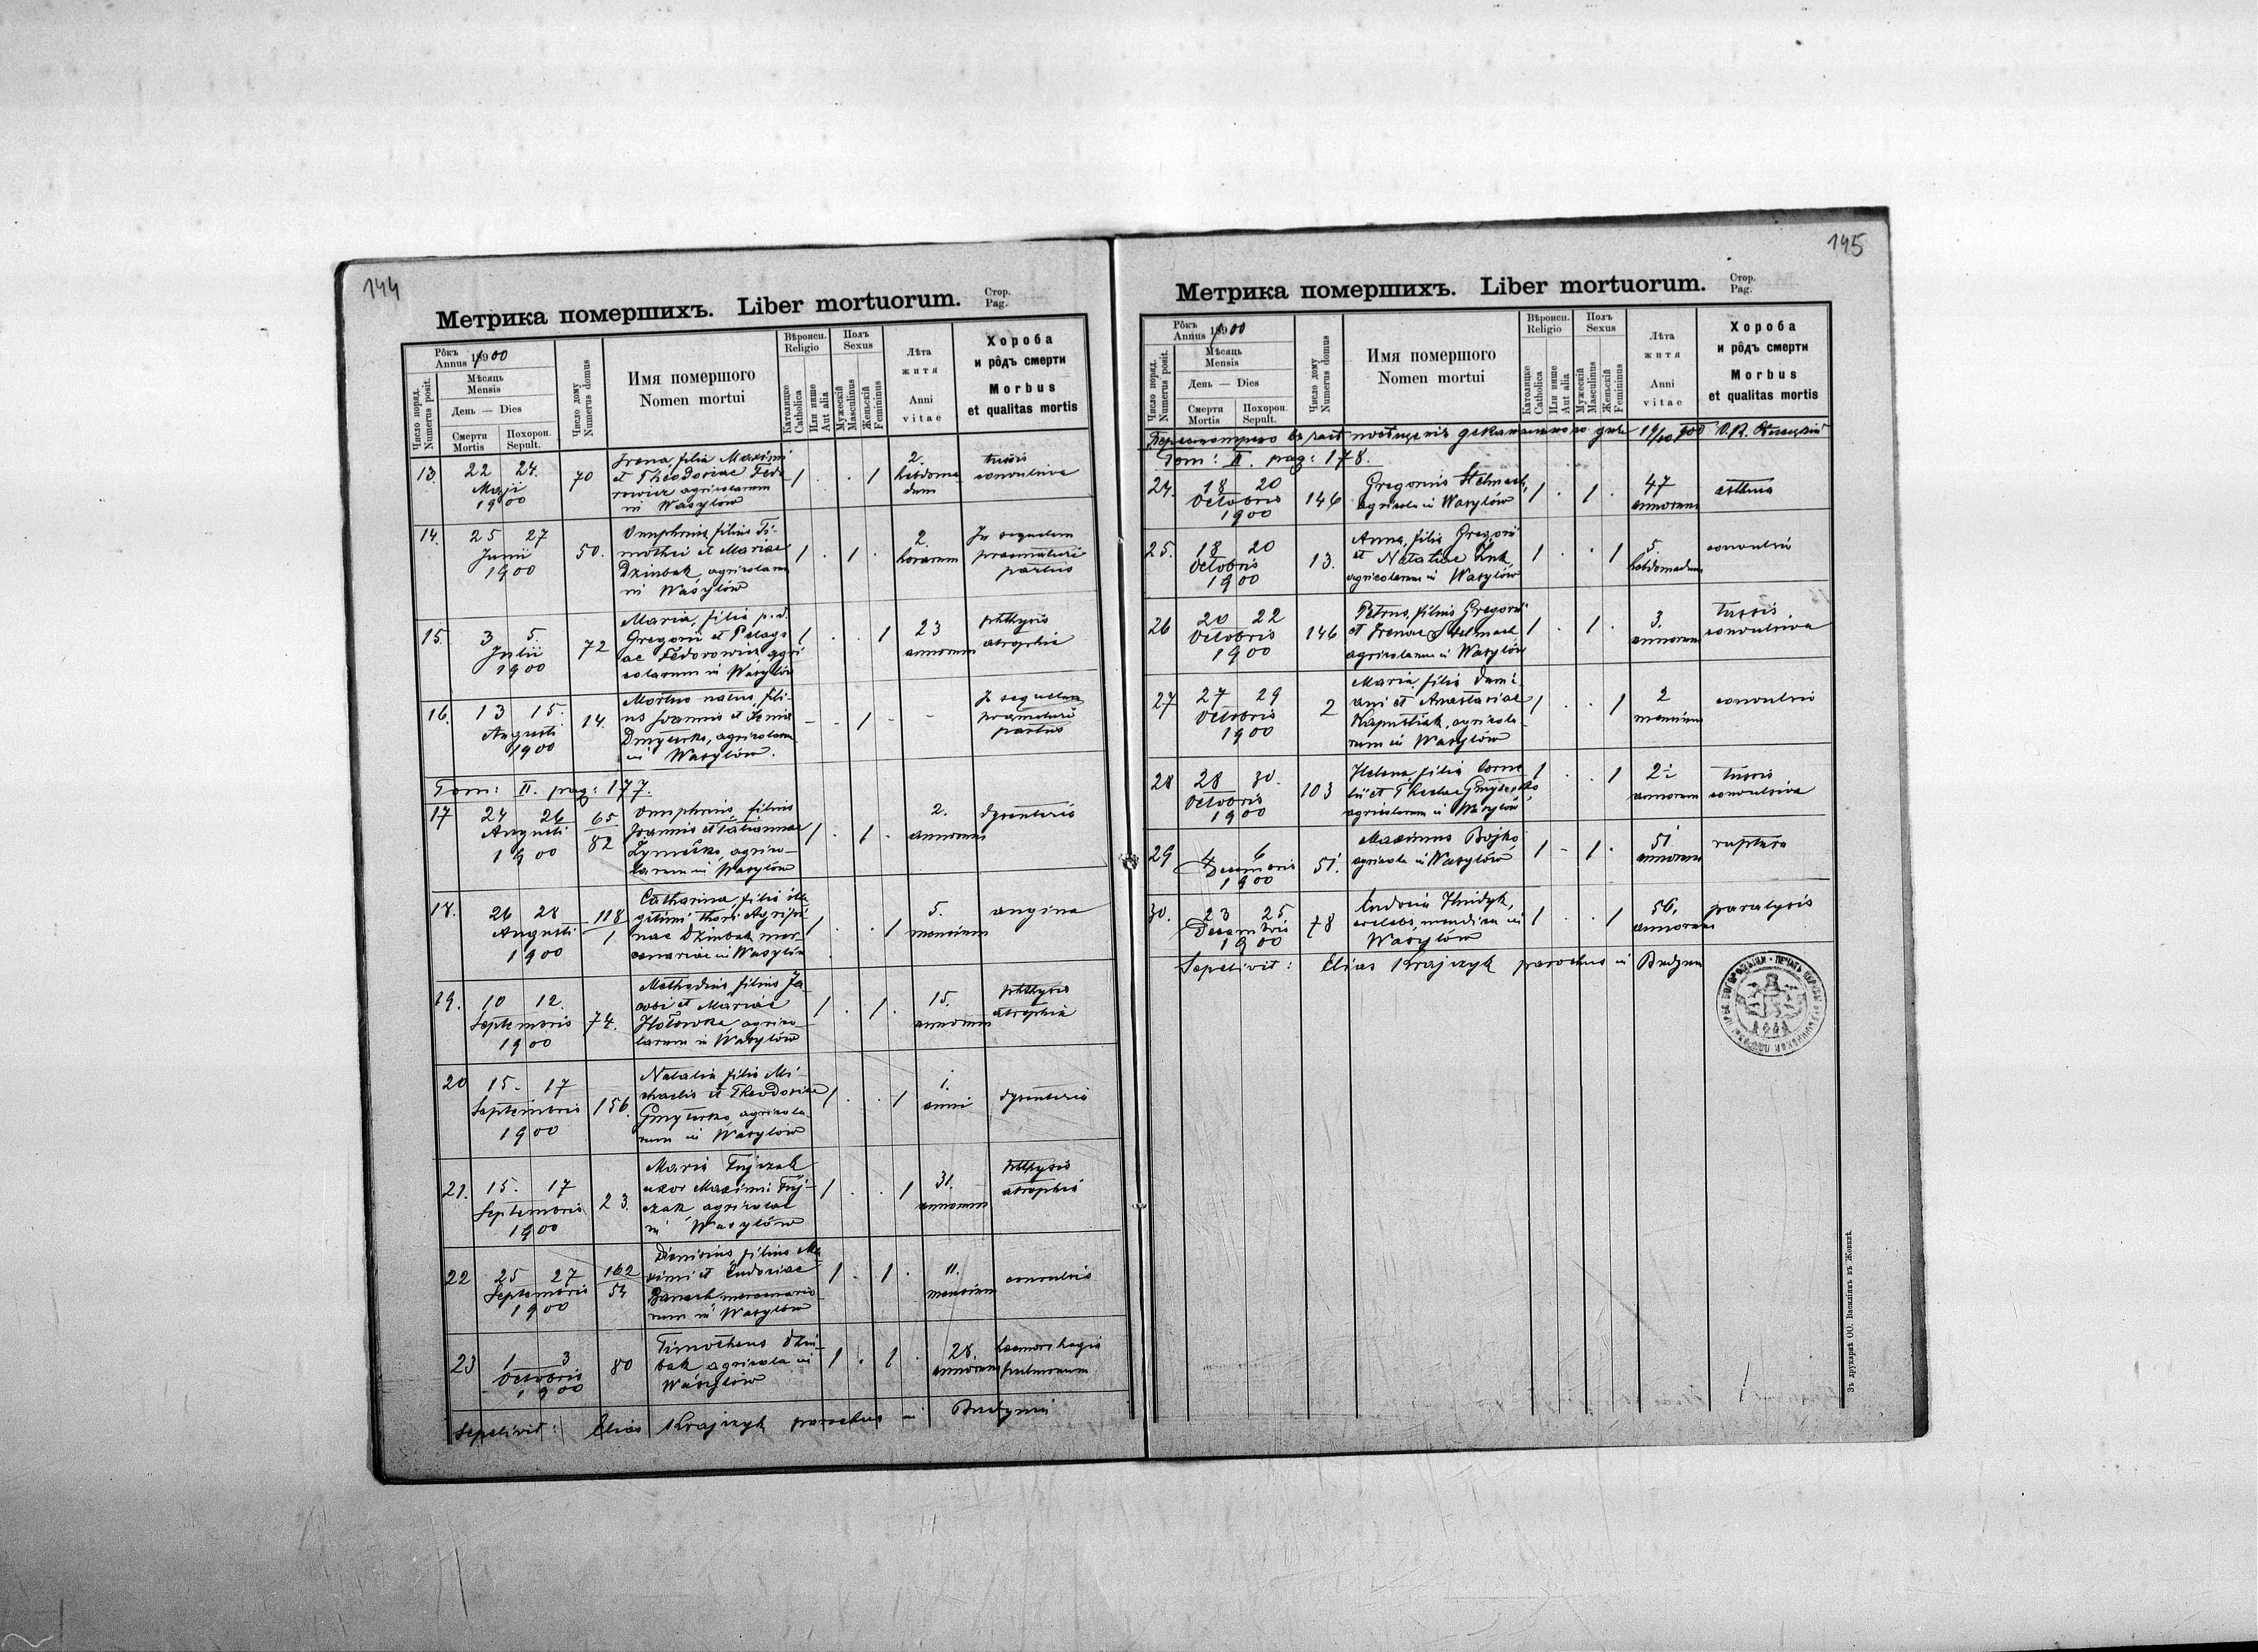 144
Метрика помершихъ. Liber mortuorum.
Стор.
Pag.
Рôкъ
Annus 1900
Мѣсяць
Mensis
День — Dies
Смерти
Mortis
Похорон.
Sepult.
Число поряд.
Numerus posit.
Число дому
Numerus domus
Имя помершого
Nomen mortui
Вѣроисп.
Religio
Католицке
Catholica
Или инше
Aut alia
Полъ
Sexus
Мужескій
Masculinus
Женьскій
Femininus
Лѣта
житя
Anni
vitae
Хороба
и рôдъ смерти
Morbus
et qualitas mortis
13. 22 24. 70 Irena filia Maximi 1 . . 1 2. tussis
Maji et Theodoriae Fedo hebdoma convulsiva
1900 rowicz agricolarum dum
in Wasylów
14. 25 27 50. Onuphrius filius Ti- 1 . 1 . 2. In sequelam
Junii mothei et Mariae horarum praematuri
1900 Dziubak, agricolarum partus
in Wasylów
15. 3 5. 72 Maria, filia p.d. 1 . . 1 23 phthysis
Julii Gregorii et Pelagi annorum atrophia
1900 ae Fedorowicz agri
colarum in Wasylów
16. 13 15. 14. Mortuo natus, fili- - - 1 - - In sequelam
Augusti us Joannis et Xenia praematuri
1900 Dmyterko, agricolarum partus
in Wasylów.
Tom: II. pag: 177.
17 24 26 65 Onuphrius, filius 1 . 1 . 2. dysenteria
Augusti 82 Joannis et Tatiannae annorum
1900 agrico-
larum in Wasylów
18. 26 28 118 Catharina, filia ille 1 . . 1 5. angina
Augusti 1 gitimi thori Agripi- mensium
1900 nae Dziubak mer-
cenariae in Wasylów
19. 10 12. 74. Methodius filius Ja- 1 . 1 . 15. phthysis
Septembris cobi et Mariae annorum atrophia
1900 Hołowka, agrico-
larum in Wasylów
20 15. 17 156. Natalia filia Mi- 1 . . 1 1. dysenteria
Septembris chaelis et Theodoriae anni
1900 Gmyterko, agricola-
rum in Wasylów
21. 15. 17 23. Maria Fujczak 1 . . 1 31. phthysis
Septembris uxor Maximi Fuj- annorum atrophia
1900 czak agricolae
in Wasylów
22 25 27 162 Dionisius filius Ma 1 . 1 . 11. convulsio
Septembris 54 ximi et Eudociae mensium
1900 Banach mercenario
rum in Wasylów
23 1 3 80 Timotheus Dziu- 1 . 1 . 28. haemorrhagia
Octobris bak agricola in annorum pulmonum
1900 Wasylów
Sepelivit: Elias Krajczyk parochus in Budynin
145
Метрика помершихъ. Liber mortuorum.
Стор.
Pag.
Рôкъ
Annus 1900
Мѣсяць
Mensis
День — Dies
Смерти
Mortis
Похорон.
Sepult.
Число поряд.
Numerus posit.
Число дому
Numerus domus
Имя помершого
Nomen mortui
Вѣроисп.
Religio
Католицке
Catholica
Или инше
Aut alia
Полъ
Sexus
Мужескій
Masculinus
Женьскій
Femininus
Лѣта
житя
Anni
vitae
Хороба
и рôдъ смерти
Morbus
et qualitas mortis
Пересмотрено въ часѣ деканального дня 19/10 900
Tom: II. pag: 178.
24. 18 20 146 Gregorius Stelmach, 1 . 1 . 47 asthma
Octobris agricola in Wasylów annorum
1900
25. 18 20 13. Anna, filia Gregorii 1 . . 1 5. convulsio
Octobris et Nataliae Żuk, hebdomadum
1900 agricolarum in Wasylów
26 20 22 146 Petrus, filius Gregorii 1 . 1 . 3. tussis
Octobris et Irenae Stelmach, annorum convulsiva
1900 agricolarum in Wasylów
27 27 29 2 Maria filia Dami- 1 . . 1 2 convulsio
Octobris ani et Anastasiae mensium
1900 Kapustiak, agricola-
rum in Wasylów
28 28 30. 103 Helena filia Corne 1 . . 1 2 tussis
Octobris lii et Theclae Gmyterko annorum convulsiva
1900 agricolarum in Wasylów
29 4 6 51. Maximus Bojko 1 - 1 . 51 ruptura
Decembris agricola in Wasylów annorum
1900
30. 23 25. 78 Eudocia Hnidyk, 1 . . 1 56. paralysis
Decembris coelebs, mendica in annorum
1900 Wasylów
Sepelivit: Elias Krajczyk parochus in Budynin
Зъ друкарнѣ ОО. Василіянъ въ Жовквѣ.